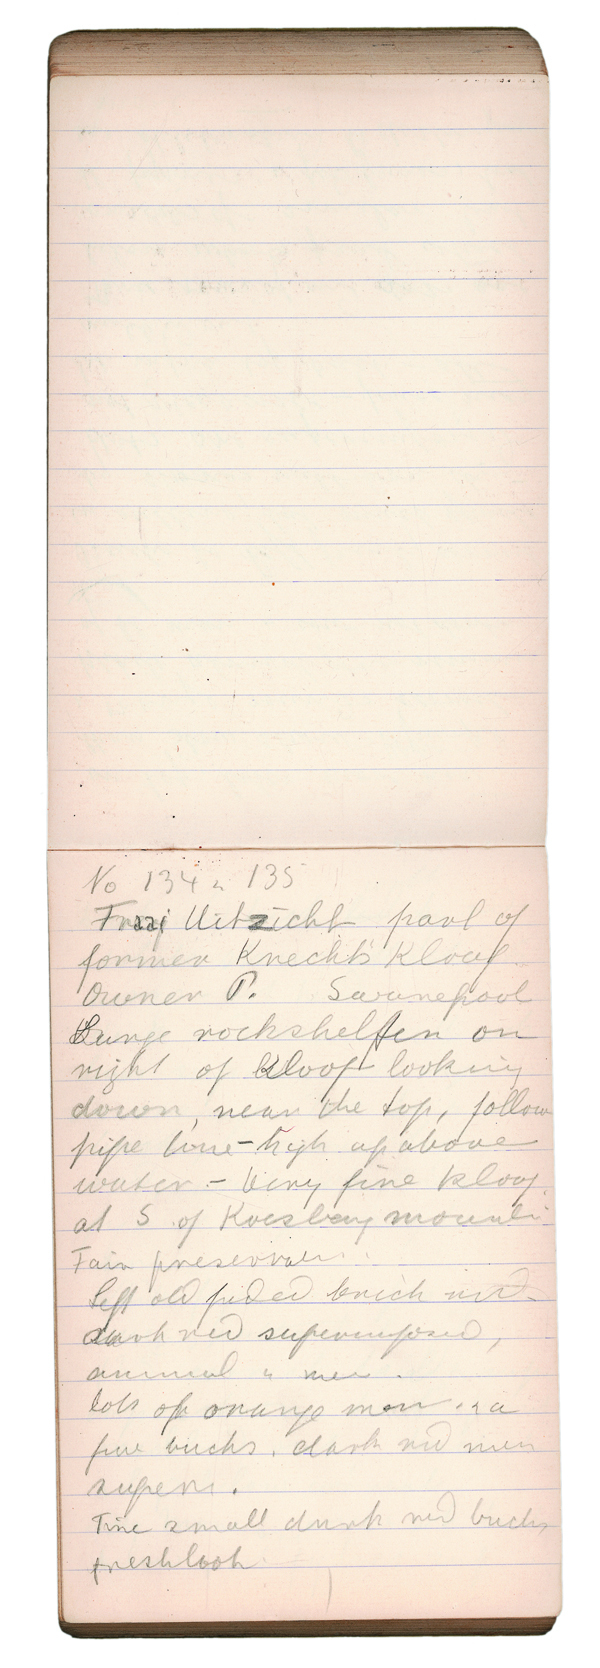 No 134 & 135
Fraai Uitzicht part of
former Knecht's Kloof.
Owner P. Swanepool
Large rockshelter on
right of Kloof looking
down, near the top, follow
pipe line - high up above
water - Very fine kloof
at S of Koesberg mount
Fair preserv
Left old faded brick red
dark red superimposed,
animal & men.
lots of orange men & a
few bucks, dark red men
superi.
Fine small dark red bucks,
fresh look